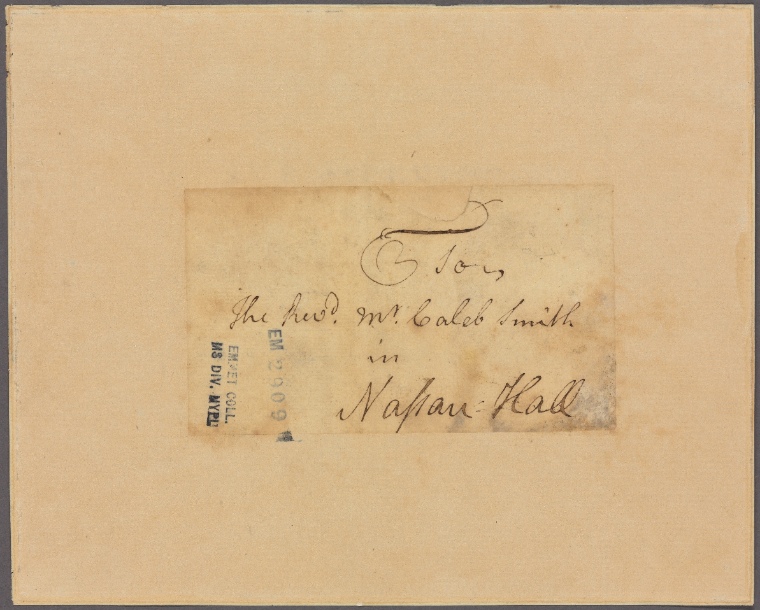 To
The Revd. Mr. Caleb Smith
in
Naſsau-Hall
EM 2909
EMMET COLL.
MS DIV. NYPL